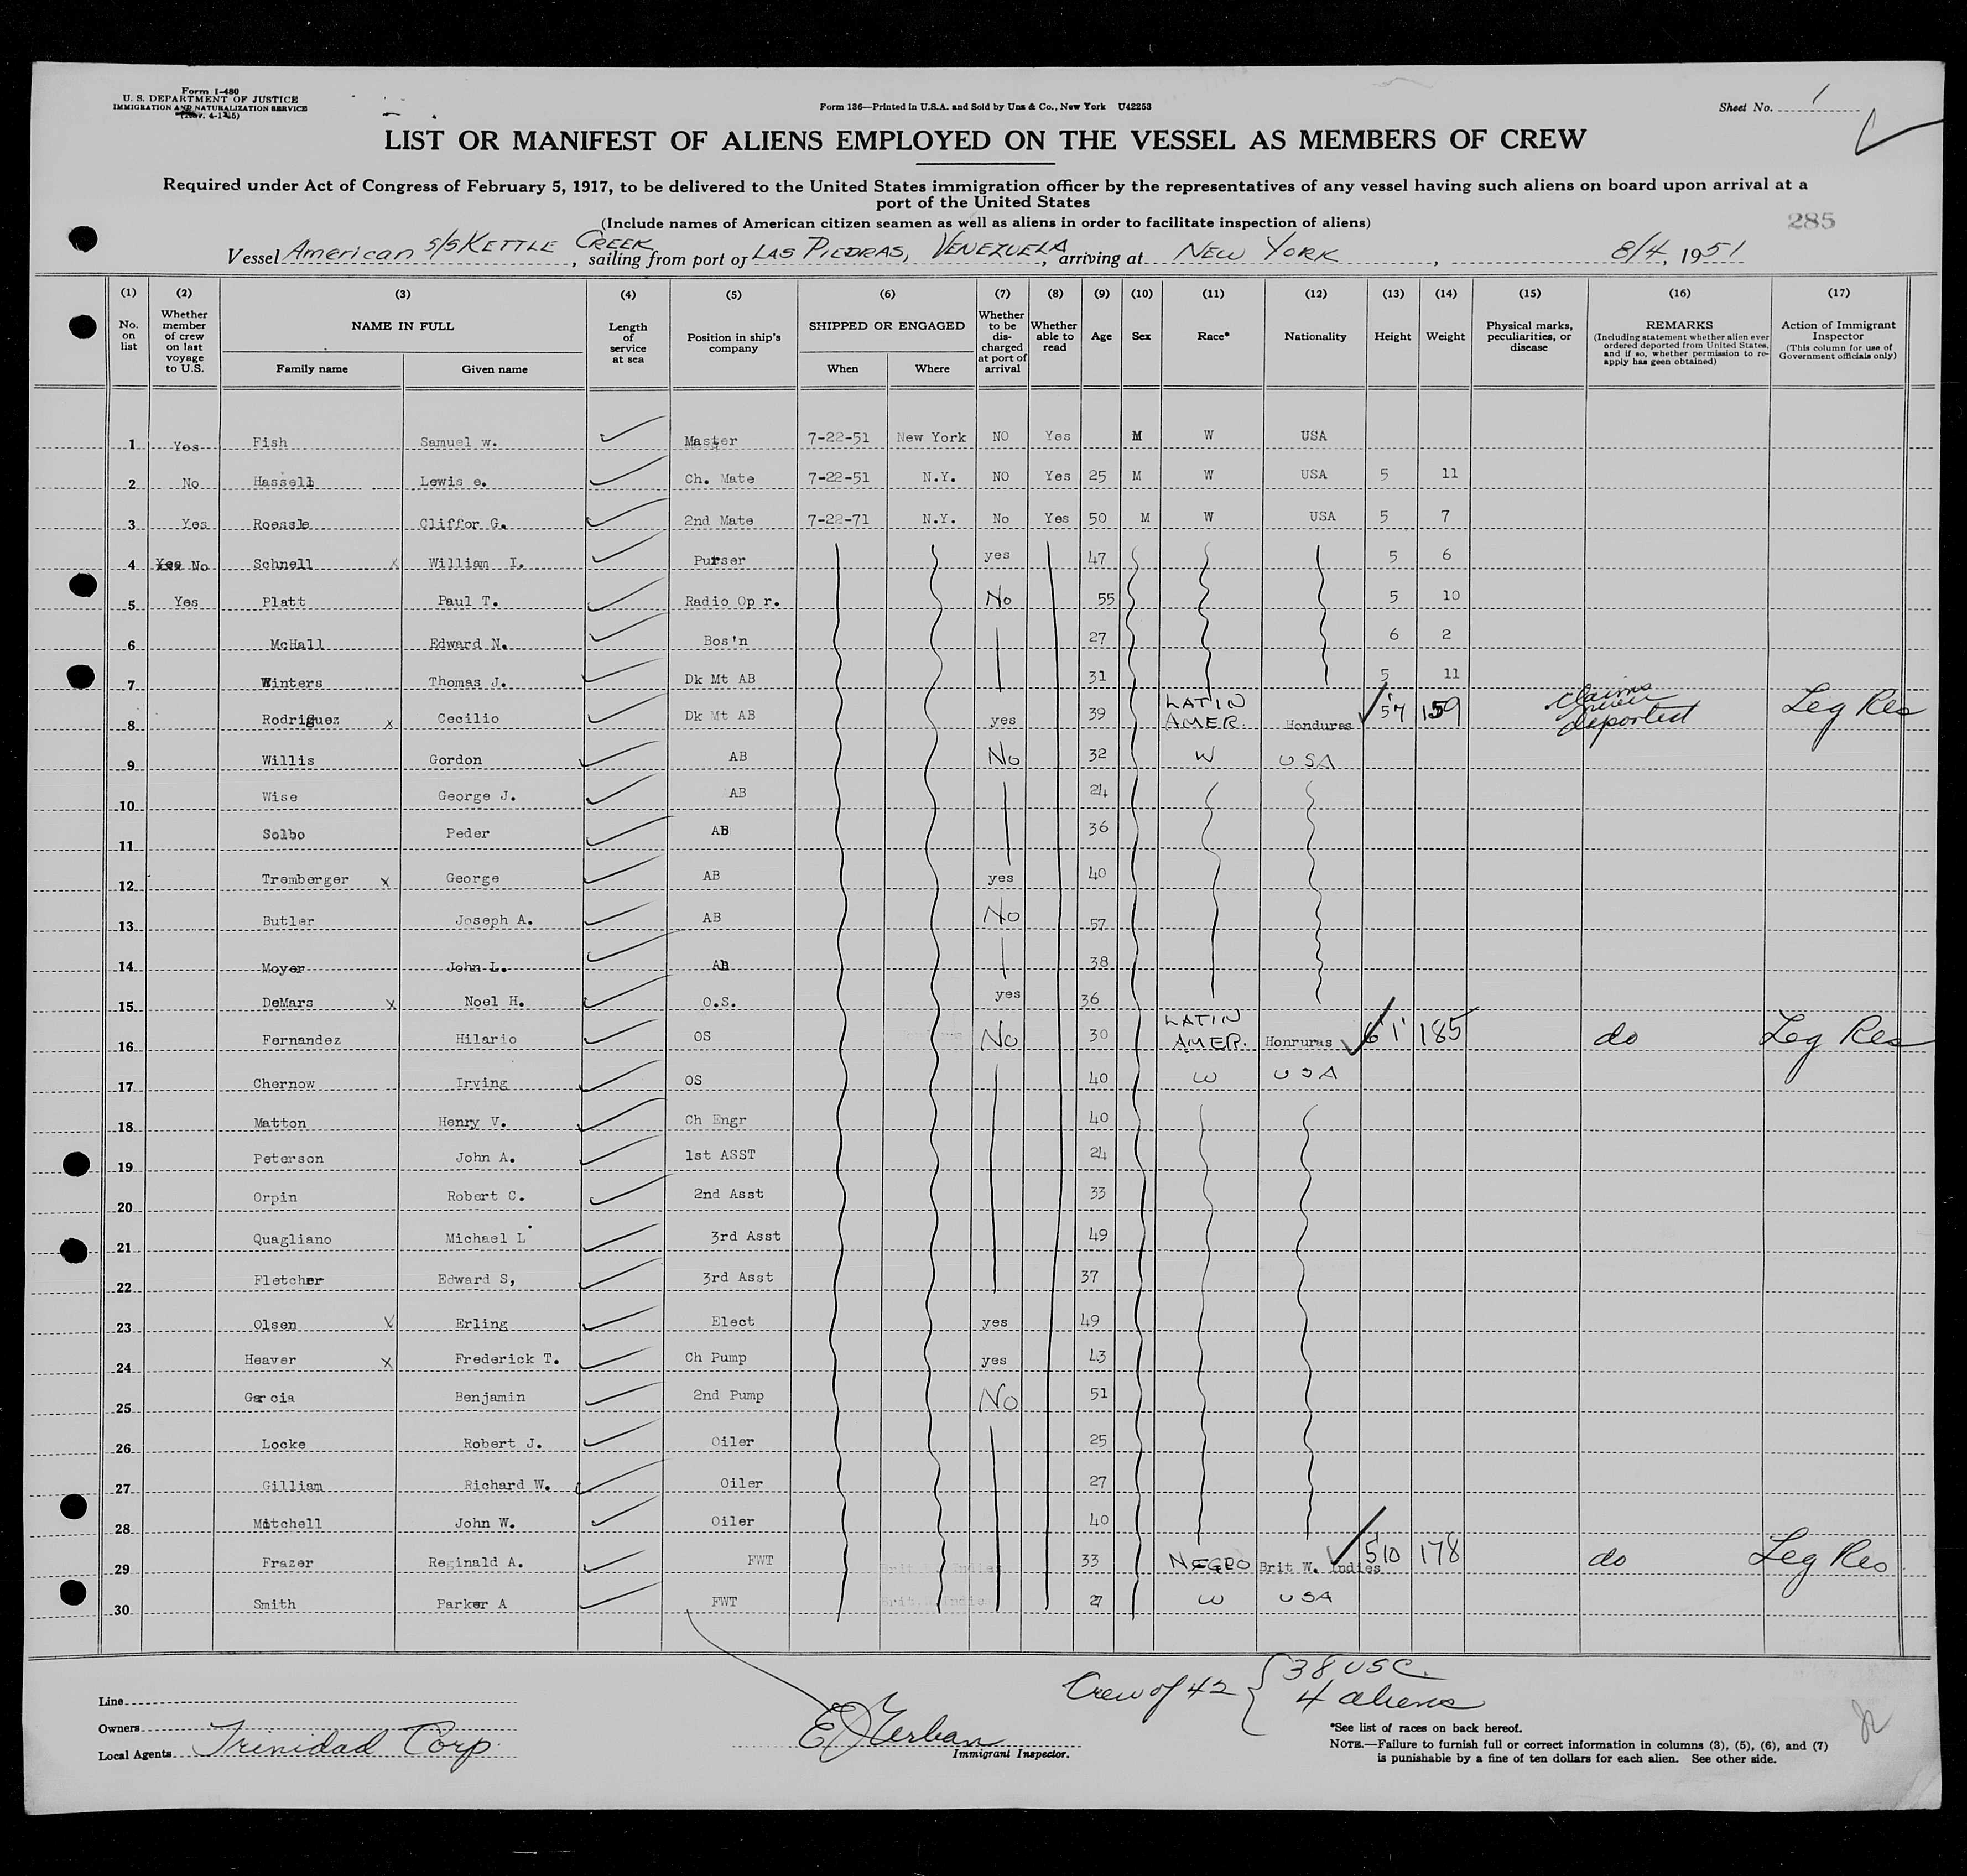 Form I-480
U. S. DEPARTMENT OF JUSTICE
IMMIGRATION AND NATURALIZATION SERVICE
(Rev. 4-1-45)
Form 136—Printed in U.S.A. and Sold by Unz & Co., New York U42253
Sheet No. 1
LIST OR MANIFEST OF ALIENS EMPLOYED ON THE VESSEL AS MEMBERS OF CREW
Required under Act of Congress of February 5, 1917, to be delivered to the United States immigration officer by the representatives of any vessel having such aliens on board upon arrival at a
port of the United States
(Include names of American citizen seamen as well as aliens in order to facilitate inspection of aliens)
285
Vessel American S/S KETTLE CREEK, sailing from port of LAS PIEDRAS, VENEZUELA, arriving at NEW YORK, 8/4, 1951
(1) (2) (3) (4) (5) (6) (7) (8) (9) (10) (11) (12) (13) (14) (15) (16) (17)
No. on list
Whether member of crew on last voyage to U.S.
NAME IN FULL
Family name Given name
Length of service at sea
Position in ship's company
SHIPPED OR ENGAGED
When Where
Whether to be discharged at port of arrival
Whether able to read
Age Sex Race* Nationality Height Weight
Physical marks, peculiarities, or disease
REMARKS
(Including statement whether alien ever ordered deported from United States, and if so, whether permission to re-apply has geen obtained)
Action of Immigrant Inspector
(This column for use of Government officials only)
1 Yes Fish Samuel w. Master 7-22-51 New York NO Yes M W USA
2 No Hassell Lewis e. Ch. Mate 7-22-51 N.Y. NO Yes 25 M W USA 5 11
3 Yes Roessle Cliffor G. 2nd Mate 7-22-71 N.Y. No Yes 50 M W USA 5 7
4 Yes No Schnell x William I. Purser yes 47 5 6
5 Yes Platt Paul T. Radio Op r. No 55 5 10
6 McHall Edward N. Bos'n 27 6 2
7 Winters Thomas J. Dk Mt AB 31 5 11
8 Rodriguez x Cecilio Dk Mt AB yes 39 LATIN AMER. Honduras 5'7 159 claims never deported Leg Res
9 Willis Gordon AB No 32 W USA
10 Wise George J. AB 24
11 Solbo Peder AB 36
12 Tremberger x George AB yes 40
13 Butler Joseph A. AB No 57
14 Moyer John L. AB 38
15 DeMars x Noel H. O.S. yes 36
16 Fernandez Hilario OS No 30 LATIN AMER. Honruras 6'1' 185 do Leg Res
17 Chernow Irving OS 40 W USA
18 Matton Henry V. Ch Engr 40
19 Peterson John A. 1st ASST 24
20 Orpin Robert C. 2nd Asst 33
21 Quagliano Michael L 3rd Asst 49
22 Fletcher Edward S, 3rd Asst 37
23 Olsen Erling Elect yes 49
24 Heaver x Frederick T. Ch Pump yes 43
25 Garcia Benjamin 2nd Pump No 51
26 Locke Robert J. Oiler 25
27 Gilliam Richard W. Oiler 27
28 Mitchell John W. Oiler 40
29 Frazer Reginald A. FWT 33 NEGRO Brit W. Indies 5'10 178 do Leg Res
30 Smith Parker A FWT 27 W USA
Line
Owners
Local Agents Trinidad Corp.
Immigrant Inspector.
Crew of 42 { 38 USC.
4 aliens
*See list of races on back hereof.
NOTE.—Failure to furnish full or correct information in columns (3), (5), (6), and (7)
is punishable by a fine of ten dollars for each alien. See other side.